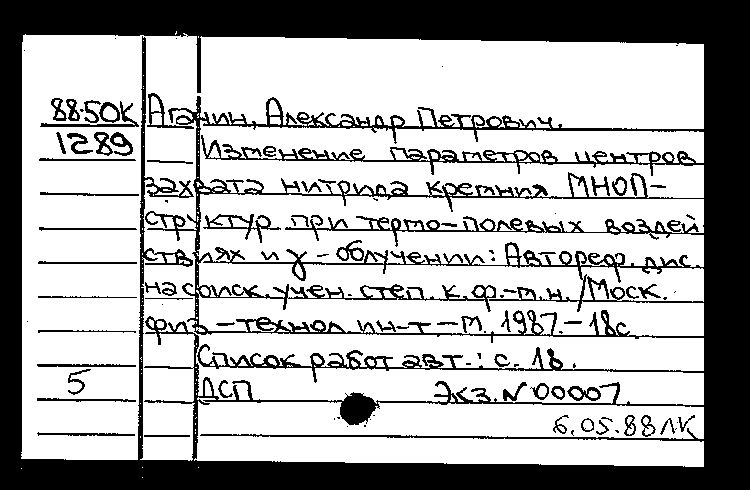 88-50К Аганин, Александр Петрович.
1289 Изменение параметров центров
захвата нитрида кремния МНОП-
структур при термо-полевых воздей
ствиях и γ-облучении: Автореф. дис.
на соиск. учен. степ. к. ф.-м. н. /Моск.
физ.-технол ин-т.-М, 1987.-18с.
Список работ авт.: с. 18.
5 ДСП Экз. N 00007.
6.05.88 ЛК